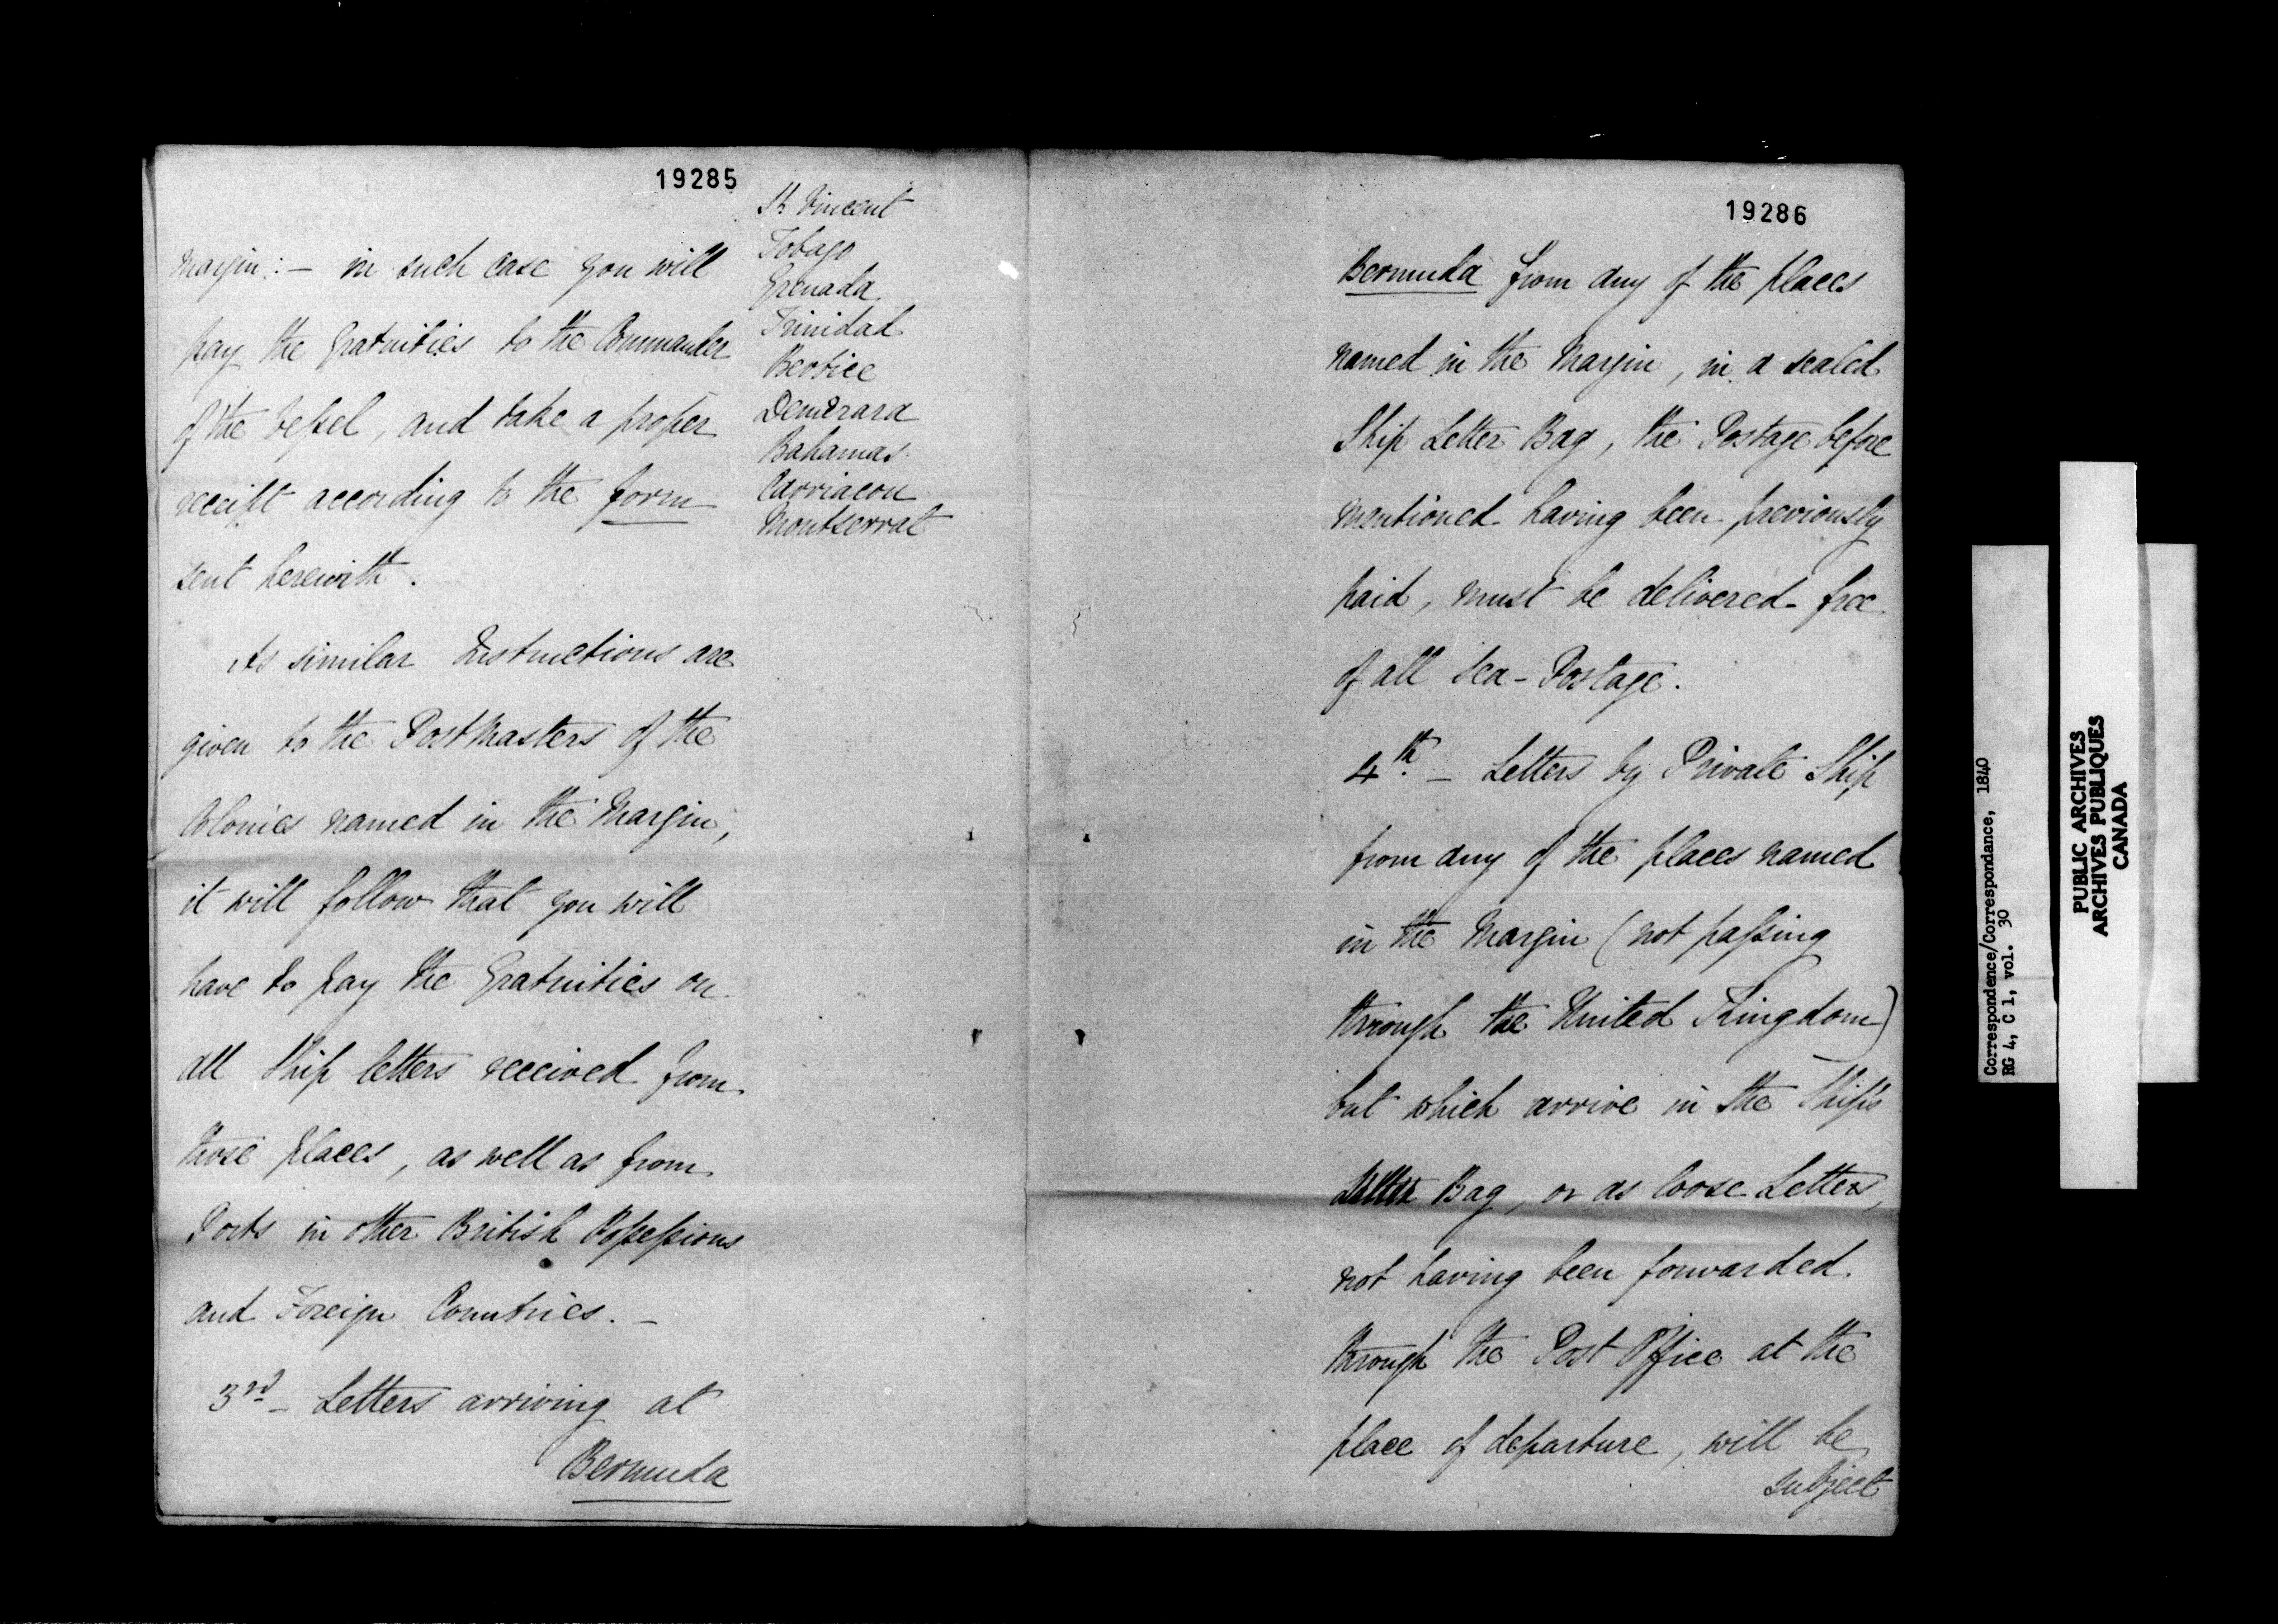 19285
margin:— in such case you will
pay the Gratuities to the Commander
of the Vessel, and take a proper
receipt according to the form
sent herewith.
As similar Instructions are
given to the Postmasters of the
Colonies named in the Margin,
it will follow that you will
have to pay the Gratuities on
all Ship letters received from
those places, as well as from
Ports in other British Possessions
and Foreign Countries. —
3rd — Letters arriving at
Bermuda
St Vincent
Tobago
Grenada
Trinidad
Berbice
Demerara
Bahamas
Carriacou
Montserrat
19286
Bermuda from any of the places
named in the Margin, in a sealed
Ship Letter Bag, the Postage before
mentioned having been previously
paid, must be delivered free
of all Sea-Postage.
4th. — Letters by Private Ship
from any of the places named
in the Margin (not passing
through the United Kingdom)
but which arrive in the Ship's
Letter Bag, or as loose Letters,
not having been forwarded
through the Post Office at the
place of departure, will be
subject
Correspondence/Correspondance, 1840
RG 4, C 1, vol. 30
PUBLIC ARCHIVES
ARCHIVES PUBLIQUES
CANADA